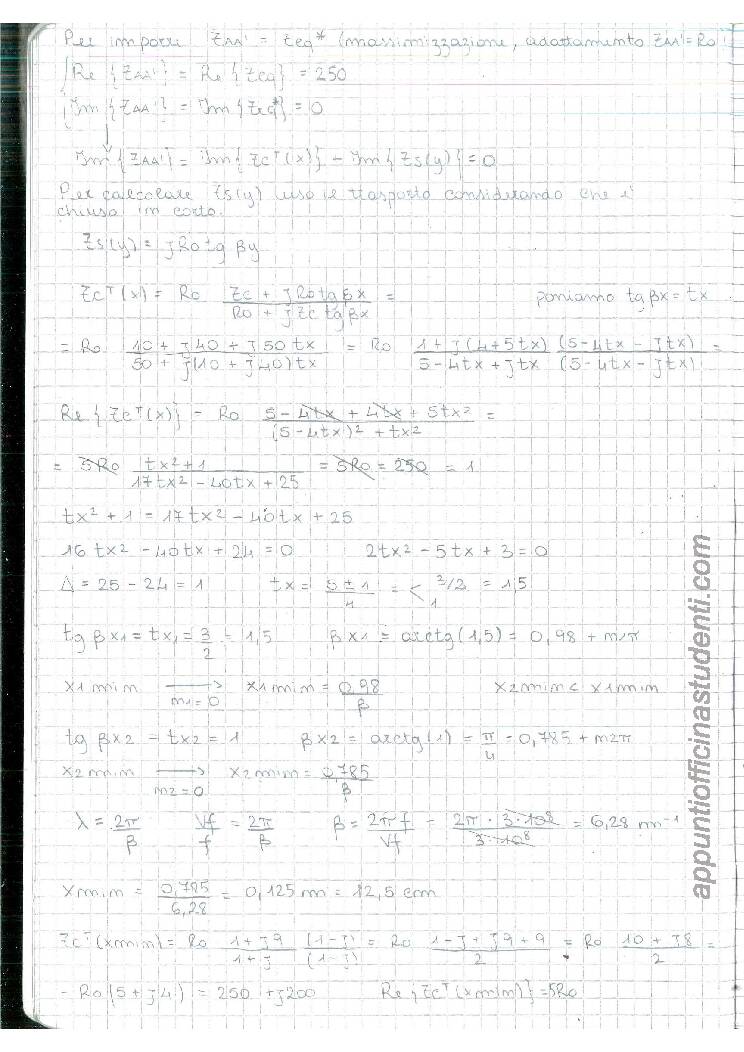 Per imporre ZAA' = Zeq* (massimizzazione, adattamento ZAA' = Ro)
{Re {ZAA'} = Re {Zeq} = 250
{Im {ZAA'} = Im {Zeq*} = 0
↓
Im {ZAA'} = Im {ZcT(x)} + Im {Zs(y)} = 0
Per calcolare Zs(y) uso il trasporto considerando che è
chiuso in corto.
Zs(y) = jRo tg βy
ZcT(x) = Ro (Zc + jRo tg βx)/(Ro + jZc tg βx) = poniamo tg βx = tx
= Ro (10 + j40 + j50 tx)/(50 + j(10 + j40)tx) = Ro (1 + j(4+5tx))/(5-4tx+jtx) (5-4tx-jtx)/(5-4tx-jtx) =
Re {ZcT(x)} = Ro (5 - 4tx + 4tx + 5tx²)/((5-4tx)² + tx²) =
= 5Ro (tx²+1)/(17tx² - 40tx + 25) = 5Ro = 250 = 1
tx² + 1 = 17tx² - 40tx + 25
16tx² - 40tx + 24 = 0 2tx² - 5tx + 3 = 0
Δ = 25 - 24 = 1 tx = (5 ± 1)/4 = < 3/2 = 1,5
1
tg βx1 = tx1 = 3/2 = 1,5 βx1 = arctg(1,5) = 0,98 + m1π
x1min →(m1=0) x1min = 0,98/β x2min < x1min
tg βx2 = tx2 = 1 βx2 = arctg(1) = π/4 = 0,785 + m2π
x2min →(m2=0) x2min = 0,785/β
λ = 2π/β Vf/f = 2π/β β = 2πf/Vf = (2π · 3·10⁸)/(3·10⁸) = 6,28 m⁻¹
xmin = 0,785/6,28 = 0,125 m = 12,5 cm
ZcT(xmin) = Ro (1+j9)/(1+j) (1-j)/(1-j) = Ro (1-j+j9+9)/2 = Ro (10+j8)/2 =
= Ro(5+j4) = 250 + j200 Re{ZcT(xmin)} = 5Ro
appuntiofficinastudenti.com